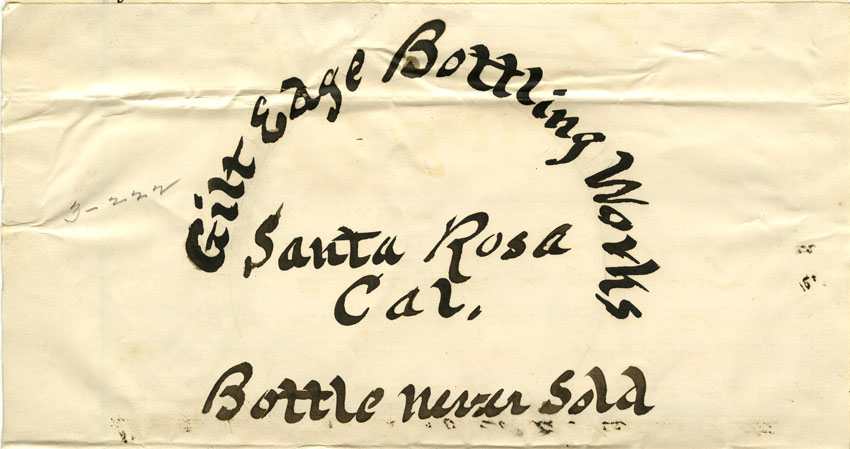 Gilt Edge Bottling Works
3-222
Santa Rosa
Cal.
Bottle never Sold